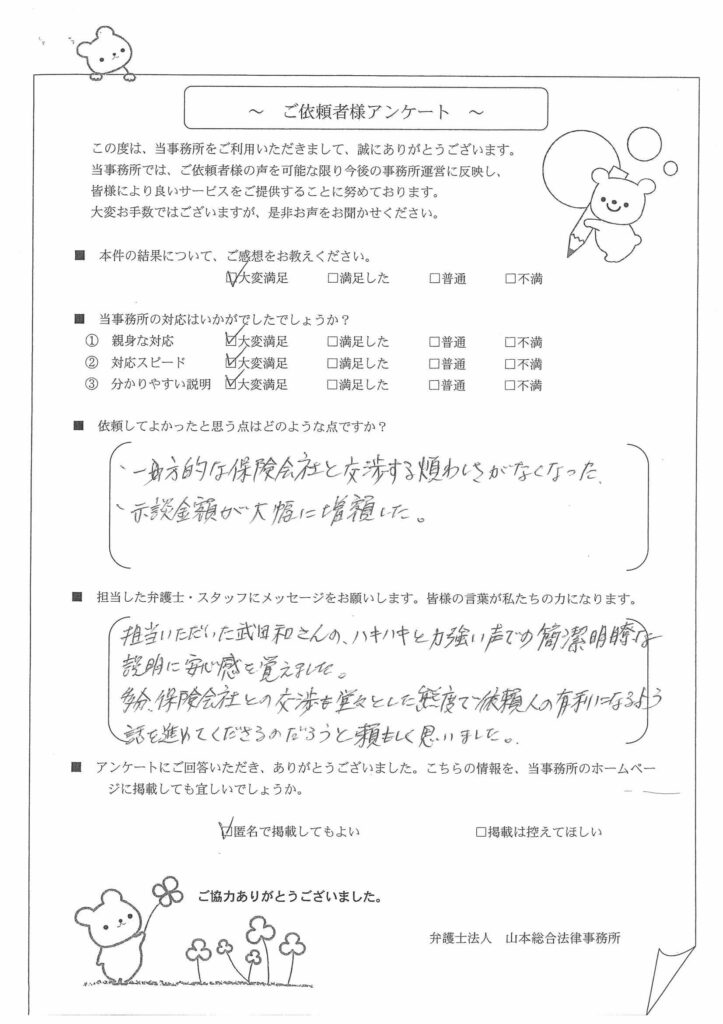 ～ ご依頼者様アンケート ～
この度は、当事務所をご利用いただきまして、誠にありがとうございます。
当事務所では、ご依頼者様の声を可能な限り今後の事務所運営に反映し、
皆様により良いサービスをご提供することに努めております。
大変お手数ではございますが、是非お声をお聞かせください。
■ 本件の結果について、ご感想をお教えください。
☑大変満足 □満足した □普通 □不満
■ 当事務所の対応はいかがでしたでしょうか？
① 親身な対応 ☑大変満足 □満足した □普通 □不満
② 対応スピード ☑大変満足 □満足した □普通 □不満
③ 分かりやすい説明 ☑大変満足 □満足した □普通 □不満
■ 依頼してよかったと思う点はどのような点ですか？
、一方的な保険会社と交渉する煩わしさがなくなった。
、示談金額が大幅に増額した。
■ 担当した弁護士・スタッフにメッセージをお願いします。皆様の言葉が私たちの力になります。
担当いただいた武田和さんの、ハキハキと力強い声での簡潔明瞭な
説明に安心感を覚えました。
多分、保険会社との交渉も堂々とした態度で依頼人の有利になるよう
話を進めてくださるのだろうと頼もしく思いました。
■ アンケートにご回答いただき、ありがとうございました。こちらの情報を、当事務所のホームペー
ジに掲載しても宜しいでしょうか。
☑匿名で掲載してもよい □掲載は控えてほしい
ご協力ありがとうございました。
弁護士法人 山本総合法律事務所